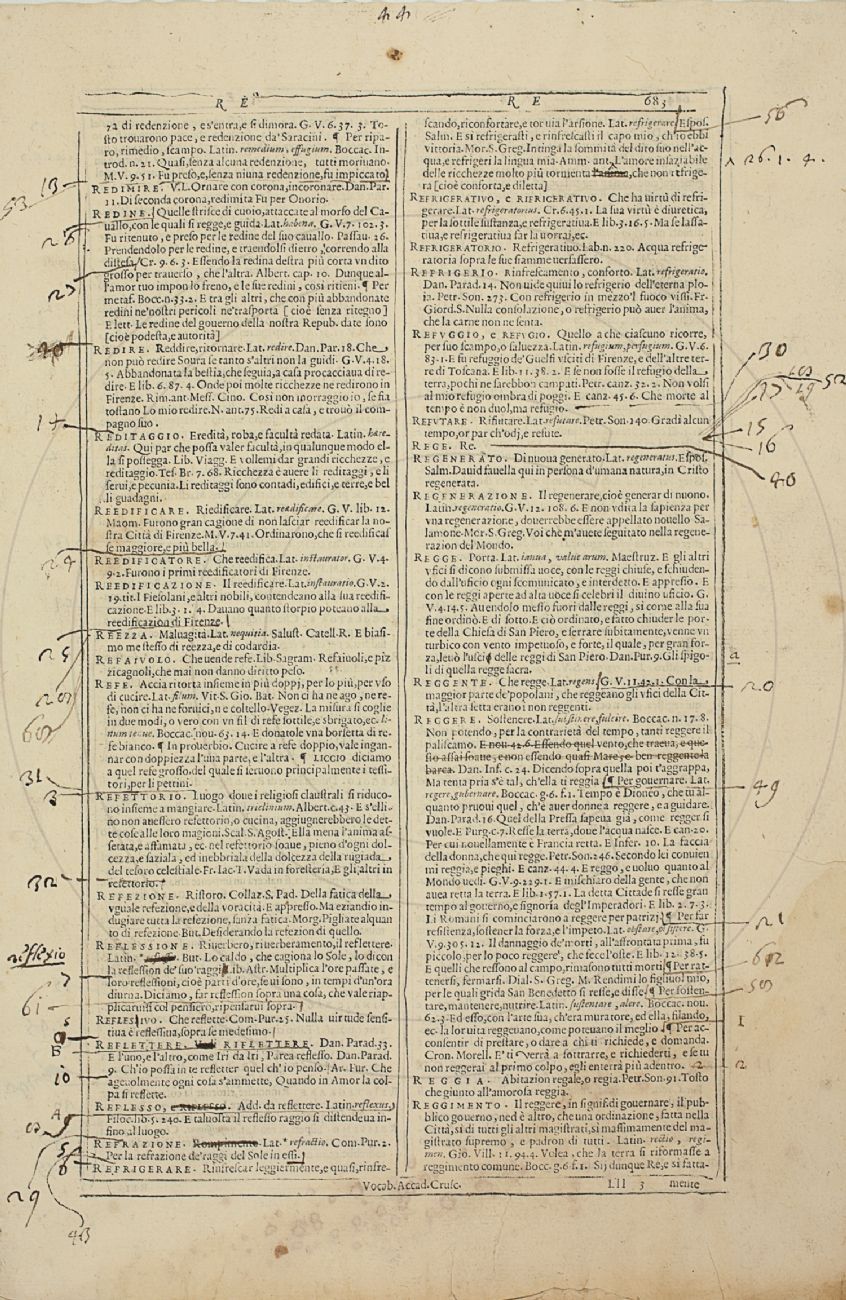 RE
RE 683
za di redenzione, e s'entra, e si dimora. G. V. 6. 37. 3. To-
sto trouarono pace, e redenzione da' Saracini. ¶ Per ripa-
ro, rimedio, scampo. Latin. remedium, effugium. Boccac. In-
trod. n. 21. Quasi, senza alcuna redenzione, tutti moriuano.
M. V. 9. 51. Fu preso, e, senza niuna redenzione, fu impiccato
REDIMIRE. V. L. Ornare con corona, incoronare. Dan. Par.
11. Di seconda corona, redimita Fu per Onorio.
REDINE. Quelle strisce di cuoio, attaccate al morso del Ca-
uallo, con le quali si regge, e guida. Lat. habena. G. V. 7. 102. 3.
Fu ritenuto, e preso per le redine del suo cauallo. Passau. 26.
Prendendolo per le redine, e traendolsi dietro, correndo alla
distesa. Cr. 9. 6. 3. Essendo la redina destra più corta vn dito
grosso per trauerso, che l'altra. Albert. cap. 10. Dunque al-
l'amor tuo impon lo freno, e le sue redini, così ritieni. ¶ Per
metaf. Bocc. n. 33. 2. E tra gli altri, che con più abbandonate
redini ne' nostri pericoli ne trasporta [cioè senza ritegno]
E lett. Le redine del gouerno della nostra Repub. date sono
[cioè podestà, e autorità]
REDIRE. Reddire, ritornare. Lat. redire. Dan. Par. 18. Che
non può redire Soura se tanto s'altri non la guidi. G. V. 4. 18.
5. Abbandonata la bestia, che seguia, a casa procacciaua di re-
dire. E lib. 6. 87. 4. Onde poi molte ricchezze ne redirono in
Firenze. Rim. ant. Mess. Cino. Così non morraggio io, se fia
tostano Lo mio redire. N. ant. 75. Redi a casa, e trouò il com-
pagno suo.
REDITAGGIO. Eredità, roba, e facultà redata. Latin. haere-
ditas. Qui par che possa valer facultà, in qualunque modo el-
la si possegga. Lib. Viagg. E vollemi dar grandi ricchezze, e
reditaggio. Tes. Br. 7. 68. Ricchezza è auere li reditaggi, e li
serui, e pecunia. Li reditaggi sono contadi, edifici, e terre, e bel
li guadagni.
REEDIFICARE. Riedificare. Lat. reaedificare. G. V. lib. 12.
Maom. Furono gran cagione di non lasciar reedificar la no-
stra Città di Firenze. M. V. 7. 41. Ordinarono, che si reedificas
se maggiore, e più bella.
REEDIFICATORE. Che reedifica. Lat. instaurator. G. V. 4.
9. 2. Furono i primi reedificatori di Firenze.
REEDIFICAZIONE. Il reedificare. Lat. instauratio. G. V. 2.
19. tit. I Fiesolani, e altri nobili, contendeano alla sua reedifi-
cazione. E lib. 3. 1. 4. Dauano quanto storpio poteano alla
reedificazion di Firenze.
REEZZA. Maluagità. Lat. nequitia. Salust. Catell. R. E biasi-
mo me stesso di reezza, e di codardia.
REFAIVOLO. Che uende refe. Lib. Sagram. Refaiuoli, e piz
zicagnoli, che mai non danno diritto peso.
REFE. Accia ritorta insieme in più doppj, per lo più, per vso
di cucire. Lat. filum. Vit. S. Gio. Bat. Non ci ha ne ago, ne re-
fe, non ci ha ne foruici, n e coltello. Vegez. La misura si coglie
in due modi, o vero con vn fil di refe sottile, e sbrigato, ec. li-
num tenue. Boccac. nou. 63. 14. E donatole vna borsetta di re-
fe bianco. ¶ In prouerbio. Cucire a refe doppio, vale ingan-
nar con doppiezza l'una parte, e l'altra. ¶ LICCIO diciamo
a quel refe grosso, del quale si seruono principalmente i tessi-
tori, per li pettini.
REFETTORIO. Luogo doue i religiosi claustrali si riduco-
no insieme a mangiare. Latin. triclinium. Albert. c. 43. E s'elli-
no non auessero refettorio, o cucina, aggiugnerebbero le det-
te cose alle loro magioni. Scal. S. Agost. Ella mena l'anima as-
setata, e affamata, ec. nel refettorio soaue, pieno d'ogni dol-
cezza, e faziala, ed inebbriala della dolcezza della rugiada
del tesoro celestiale. Fr. Iac. T. Vada in foresteria, E gli altri in
refettorio.
REFEZIONE. Ristoro. Collaz. S. Pad. Della fatica della
vguale refezione, e della voracità. E appresso. Ma eziandio in-
dugiare tutta la refezione, sanza fatica. Morg. Pigliate alquan
to di refezione. But. Desiderando la refezion di quello.
REFLESSIONE. Riuerbero, riuerberamento, il reflettere.
Latin. But. Lo caldo, che cagiona lo Sole, lo dicon
la reflession de' suo' raggi. Lib. Astr. Multiplica l'ore passate, e
loro reflessioni, cioè parti d'ore, se ui sono, in tempi d'un'ora
diurna. Diciamo, far reflession sopra una cosa, che vale riap-
plicaruisi col pensiero, ripensarui sopra.
REFLESSIVO. Che reflette. Com. Pur. 25. Nulla uirtude sensi-
tiua è reflessiua, sopra se medesimo.
REFLETTERE. Vedi RIFLETTERE. Dan. Parad. 33.
E l'uno, e l'altro, come Iri da Iri, Parea reflesso. Dan. Parad.
9. Ch'io possa in te refletter quel ch'io penso. Ar. Fur. Che
ageuolmente ogni cosa s'ammette, Quando in Amor la col-
pa si reflette.
REFLESSO, e RIFLESSO. Add. da reflettere. Latin. reflexus.
Filoc. lib. 5. 240. E taluolta il reflesso raggio si distendeua in-
fino al luogo.
REFRAZIONE. Rompimento. Lat. refractio. Com. Pur. 2.
Per la refrazione de' raggi del Sole in essi.
REFRIGERARE. Rinfrescar leggiermente, e quasi, rinfre-
scando, riconfortare, e tor uia l'arsione. Lat. refrigerare. Espos.
Salm. E si refrigerasti, e rinfrescasti il capo mio, ch'io ebbi
vittoria. Mor. S. Greg. Intinga la sommità del dito suo nell'ac-
qua, e refrigeri la lingua mia. Amm. ant. L'amore insaziabile
delle ricchezze molto più tormenta, che non refrige-
ra [cioè conforta, e diletta]
REFRIGERATIVO, e RIFRIGERATIVO. Che ha uirtù di refri-
gerare. Lat. refrigeratorius. Cr. 6. 45. 1. La sua virtù è diuretica,
per la sottile sustanza, e refrigeratiua. E lib. 3. 16. 5. Ma se lassa-
tiua, e refrigeratiua far la uorrai, ec.
REFRIGERATORIO. Refrigeratiuo. Lab. n. 220. Acqua refrige-
ratoria sopra le sue fiamme uersassero.
REFRIGERIO. Rinfrescamento, conforto. Lat. refrigeratio.
Dan. Parad. 14. Non uide quiui lo refrigerio dell'eterna plo-
ia. Petr. Son. 273. Con refrigerio in mezzo 'l fuoco vissi. Fr.
Giord. S. Nulla consolazione, o refrigerio può auer l'anima,
che la carne non ne senta.
REFVGGIO, e REFVGIO. Quello a che ciascuno ricorre,
per suo scampo, o saluezza. Latin. refugium, perfugium. G. V. 6.
83. 1. E fu refuggio de' Guelfi vsciti di Firenze, e dell'altre ter-
re di Toscana. E lib. 11. 38. 2. E se non fosse il refugio della
terra, pochi ne sarebbon campati. Petr. canz. 32. 2. Non volsi
al mio refugio ombra di poggi. E canz. 45. 6. Che morte al
tempo è non duol, ma refugio.
REFVTARE. Rifiutare. Lat. refutare. Petr. Son. 140. Gradì alcun
tempo, or par ch'odj, e refute.
REGE. Re.
REGENERATO. Di nuoua generato. Lat. regeneratus. Espos.
Salm. Dauid fauella qui in persona d'umana natura, in Cristo
regenerata.
REGENERAZIONE. Il regenerare, cioè generar di nuono.
Latin. regeneratio. G. V. 12. 108. 6. E non vdita la sapienza per
vna regenerazione, douerrebbe essere appellato nouello Sa-
lamone. Mor. S. Greg. Voi che m'auete seguitato nella regene-
razion del Mondo.
REGGE. Porta. Lat. ianua, valuae arum. Maestruz. E gli altri
vfici si dicono submissa uoce, con le reggi chiuse, e schiuden-
do dall'uficio ogni scomunicato, e interdetto. E appresso. E
con le reggi aperte ad alta uoce si celebri il diuino uficio. G.
V. 4. 14. 5. Auendolo messo fuori dalle reggi, si come alla sua
fine ordinò. E di sotto. E ciò ordinato, e fatto chiuder le por-
te della Chiesa di San Piero, e serrare subitamente, venne vn
turbico con vento impetuoso, e forte, il quale, per gran for-
za, leuò l'uscio delle reggi di San Piero. Dan. Pur. 9. Gli spigo-
li di quella regge sacra.
REGGENTE. Che regge. Lat. regens. G. V. 11. 42. 1. Con la
maggior parte de' popolani, che reggeano gli vfici della Cit-
tà, l'altra setta erano i non reggenti.
REGGERE. Sostenere. Lat. sustinere, fulcire. Boccac. n. 17. 8.
Non potendo, per la contrarietà del tempo, tanti reggere il
palischamo. E nou. 42. 6. Essendo quel vento, che traeua, e que-
sto assai soaue, e non essendo quasi Mare, e ben reggente la
barca. Dan. Inf. c. 24. Dicendo sopra quella poi t'aggrappa,
Ma tenta pria s'è tal, ch'ella ti reggia. ¶ Per gouernare. Lat.
regere, gubernare. Boccac. g. 6. f. 1. Tempo è Dioneo, che tu al-
quanto pruoui quel, ch'è auer donne a reggere, e a guidare.
Dan. Parad. 16. Quel della Pressa sapeua già, come regger si
vuole. E Purg. c. 7. Resse la terra, doue l'acqua nasce. E can. 20.
Per cui nouellamente è Francia retta. E Infer. 10. La faccia
della donna, che qui regge. Petr. Son. 246. Secondo lei conuien
mi reggia, e pieghi. E canz. 44. 4. E reggo, e uoluo quanto al
Mondo uedi. G. V. 9. 229. 1. E mischiaro della gente, che non
auea retta la terra. E lib. 1. 57. 1. La detta Cittade si resse gran
tempo al gouerno, e signoria degl'Imperadori. E lib. 2. 7. 3.
Li Romani si cominciarono a reggere per patrizj. ¶ Per far
resistenza, sostener la forza, e l'impeto. Lat. obstare, resistere. G.
V. 9. 305. 12. Il dannaggio de' morti, all'affrontata prima, fu
piccolo, per lo poco reggere, che fece l'oste. E lib. 12. 38. 5.
E quelli che ressono al campo, rimasono tutti morti. ¶ Per rat-
tenersi, fermarsi. Dial. S. Greg. M. Rendimi lo figliuol mio,
per le quali grida San Benedetto si resse, e disse. ¶ Per sosten-
tare, mantenere, nutrire. Latin. sustentare, alere. Boccac. nou.
62. 3. Ed esso, con l'arte sua, ch'era muratore, ed ella, filando,
ec. la lor uita reggeuano, come poteuano il meglio. ¶ Per ac-
consentir di prestare, o dare a chi ti richiede, e domanda.
Cron. Morell. E' ti verrà a sottrarre, e richiederti, e se tu
non reggerai al primo colpo, egli enterrà più adentro.
REGGIA. Abitazion regale, o regia. Petr. Son. 91. Tosto
che giunto all'amorosa reggia.
REGGIMENTO. Il reggere, in signif. di gouernare, il pub-
blico gouerno, ned è altro, che una ordinazione, fatta nella
Città, si di tutti gli altri magistrati, si massimamente del ma-
gistrato supremo, e padron di tutti. Latin. rectio, regi-
men. Gio. Vill. 11. 94. 4. Volea, che la terra si riformasse a
reggimento comune. Bocc. g. 6. f. 1. Sij dunque Re, e si fatta-
Vocab. Accad. Crusc. LII 3 mente
13
53
26
27
14
24
25
31
3
32
reflexio
7
61
10
29
43
56
26. 1. 4.
30
52
15
16
40
a
20
49
21
62
1
2